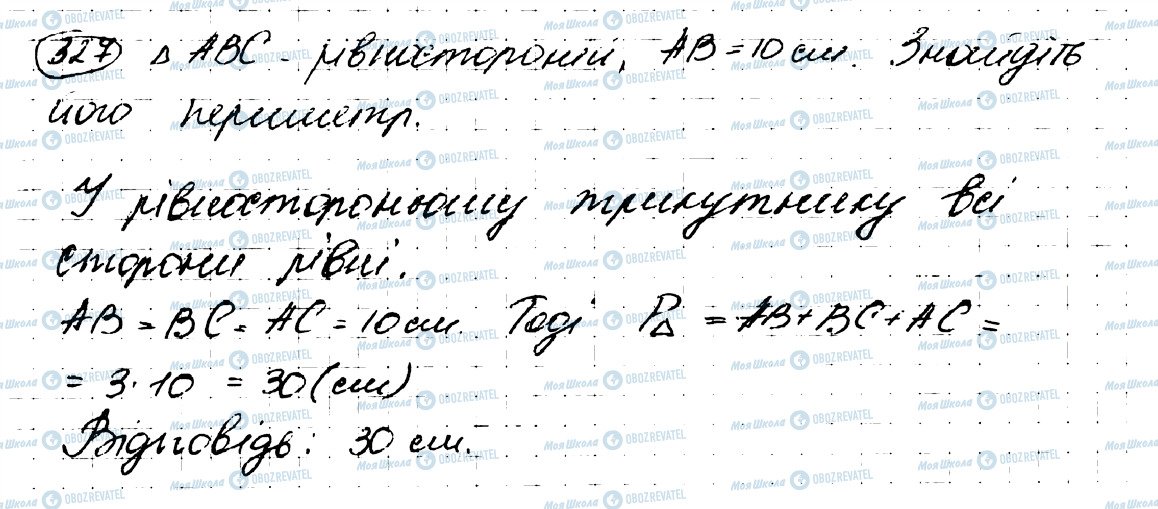 327 Δ ABC - рівносторонній, AB = 10 см. Знайдіть
його периметр.
У рівносторонньому трикутнику всі
сторони рівні.
AB = BC = AC = 10 см. Тоді P△ = AB + BC + AC =
= 3 · 10 = 30 (см)
Відповідь: 30 см.